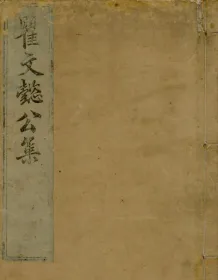 瞿文懿公集